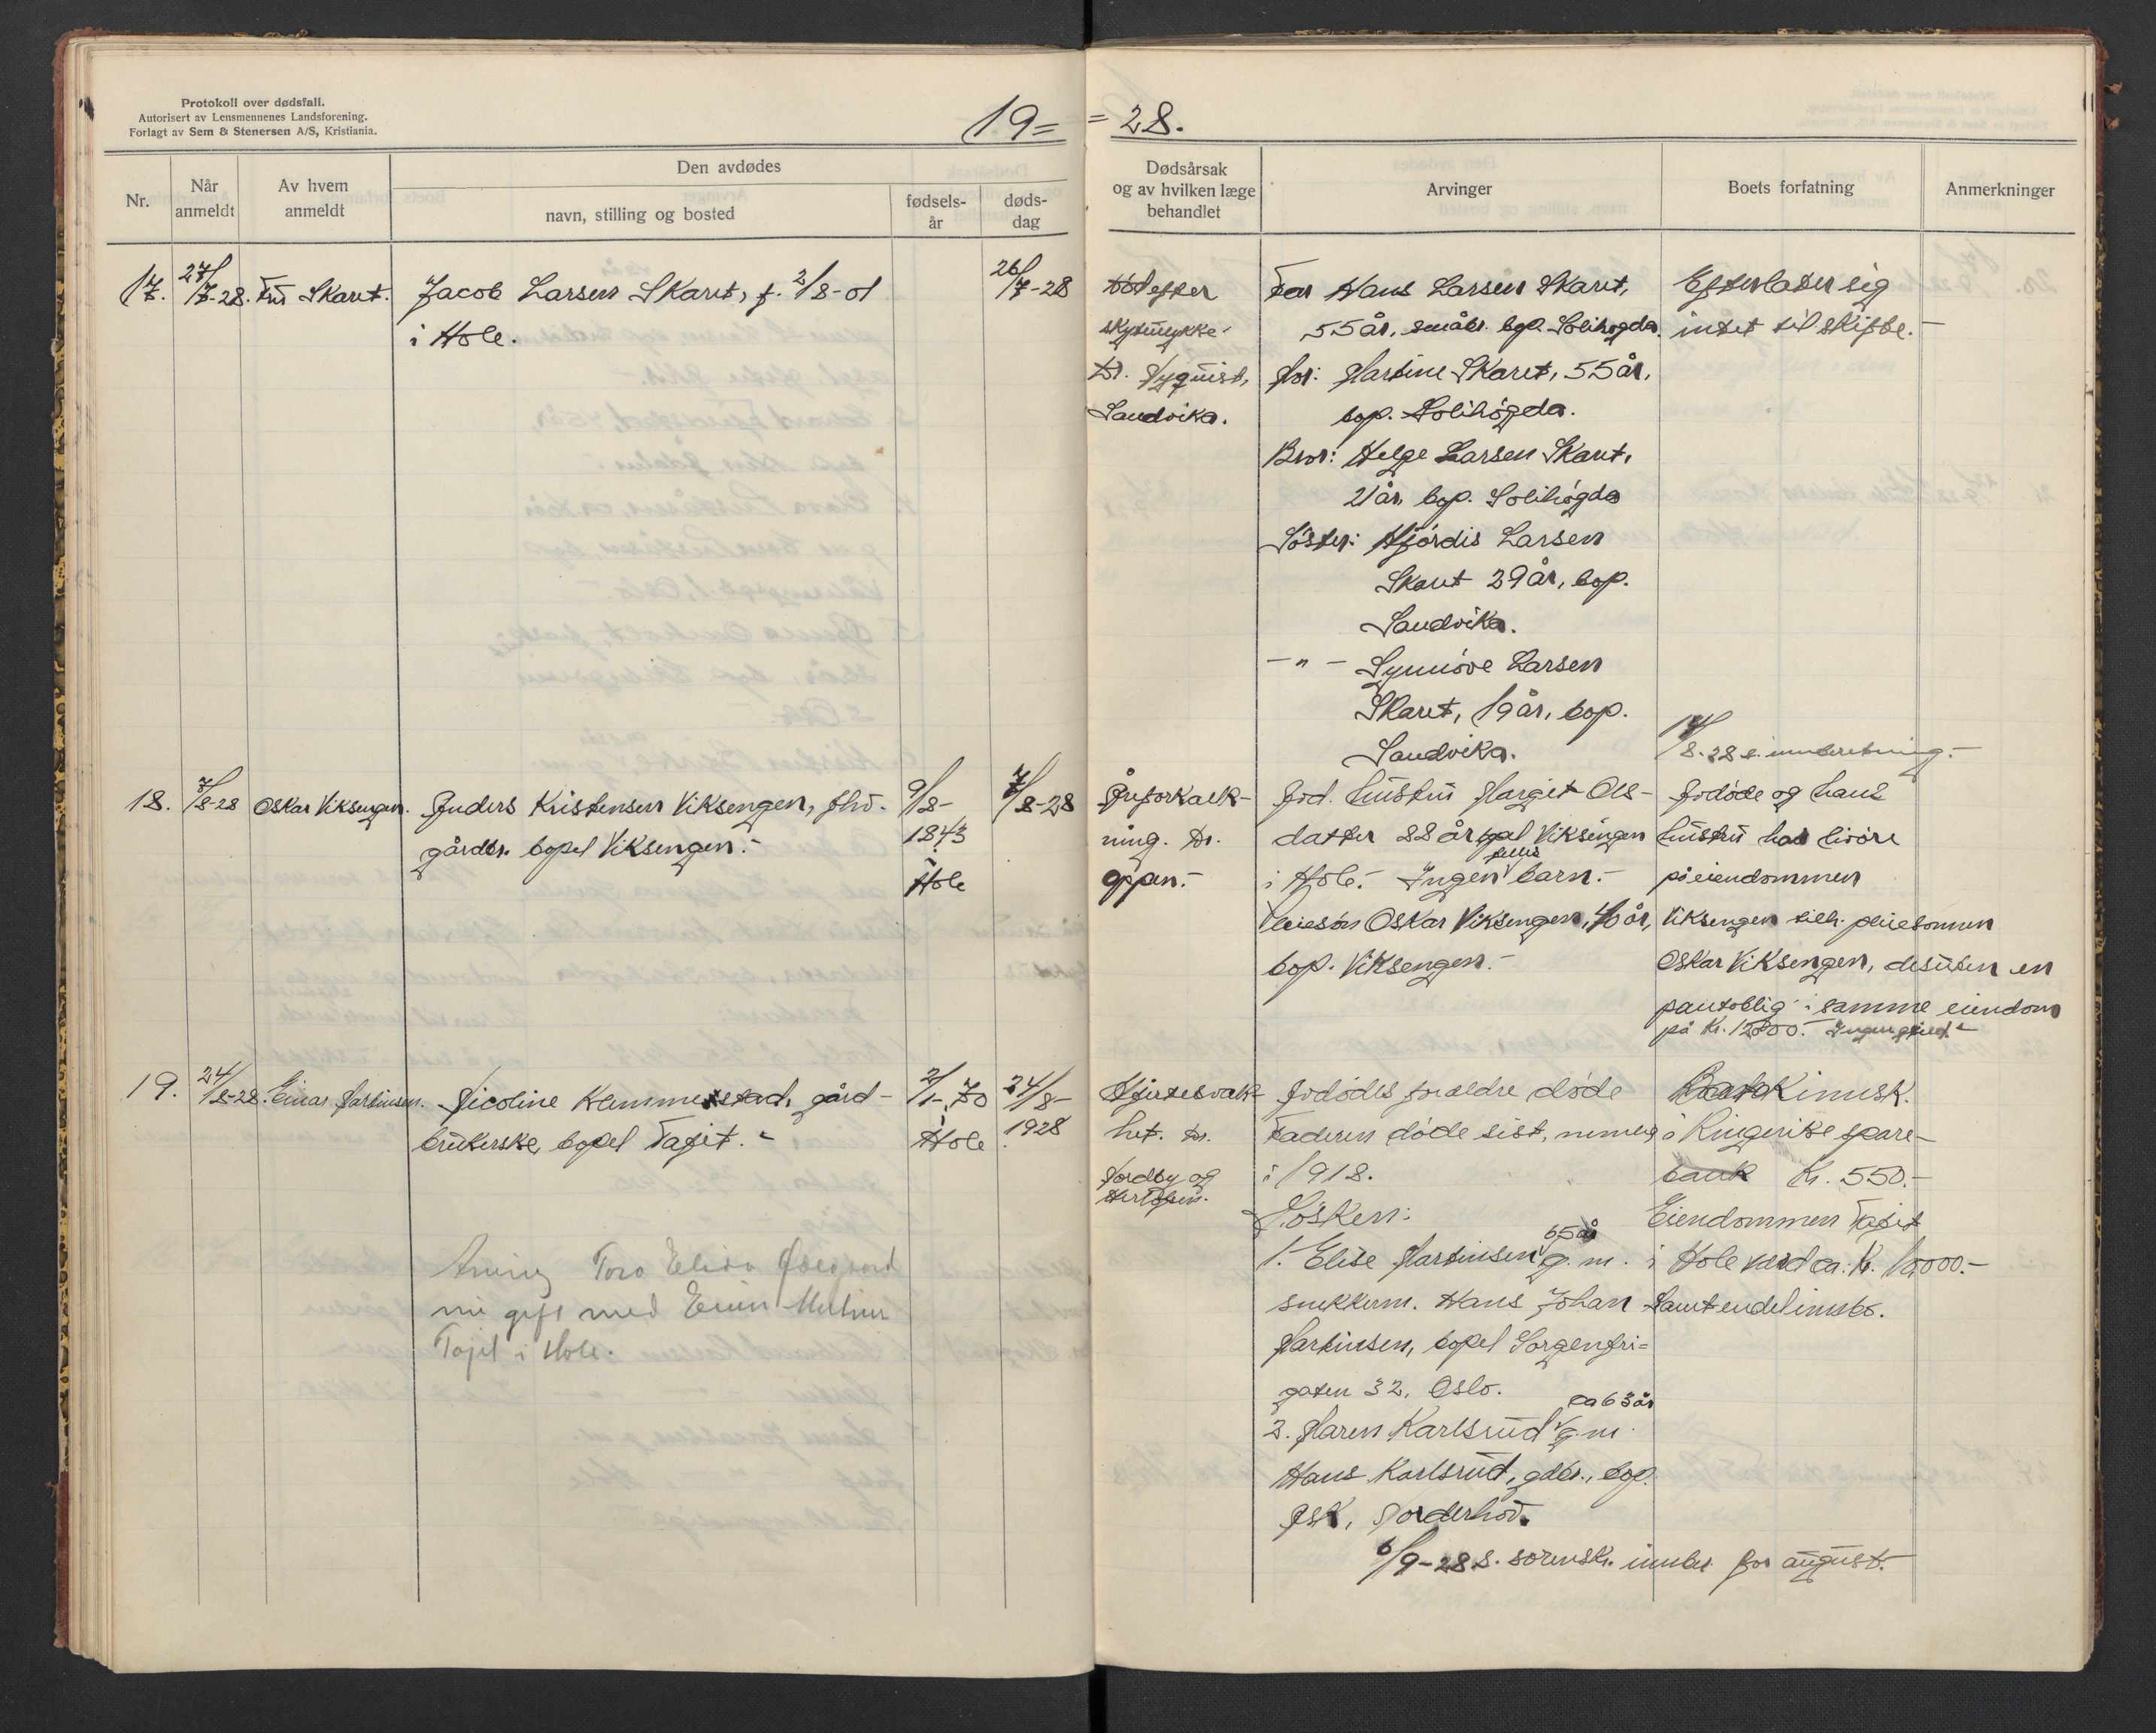 Protokoll over dødsfall.
Autorisert av Lensmennenes Landsforening.
Forlagt av Sem & Stenersen A/S, Kristiania.
19= =28.
Nr.
Når anmeldt
Av hvem anmeldt
Den avdødes
navn, stilling og bosted
fødsels-år
døds-dag
Dødsårsak og av hvilken læge behandlet
Arvinger
Boets forfatning
Anmerkninger
17. 27/7-28. Fru Skaret. Jacob Larsen Skaret, f. 2/8-01 26/7-28
i Hole.
Död efter
skytulykke.
Dr. Nyquist,
Sandvika.
Far Hans Larsen Skaret,
55 år, småbr. bop. Solihøgda.
Mor: Martine Skaret, 55 år,
bop. Solihögda.
Bror: Helge Larsen Skaret,
21 år, bop. Solihögda
Söster: Hjördis Larsen
Skaret 29 år, bop.
Sandvika.
-"- Synnöve Larsen
Skaret, 19 år, bop.
Sandvika.
Efterlater sig
intet til skifte.-
18. 7/8-28 Oskar Viksengen. Anders Kristensen Viksengen, fhv. 9/8- 7/8-28
gårdbr. bopel Viksengen.- 1843
i
Hole
Åreforkalk-
ning. Dr.
Oppen.-
Avd. hustru Margit Ols-
datter 88 år bopel Viksengen
felles
i Hole.- Ingen barn.-
Pleiesön Oskar Viksengen, 40 år,
bop. Viksengen.-
14/8-28 s. innberetning.-
Avdöde og hans
hustru har livöre
på eiendommen
Viksengen tilh. pleiesönnen
Oskar Viksengen, desuten en
pantoblig. i samme eiendom
på kr. 12000.- Ingen gjeld.-
19. 24/8-28. Einar Martinsen. Nicoline Hammerstad, gård- 2/1-70 24/8-
brukerske, bopel Tajet.- i Hole 1928.
Arving Tora Elida Ødegaard
nu gift med Einar Martinsen
Tajet i Hole.
Hjertesvak-
het. Dr.
Nordby og
Avdödes foreldre döde
Faderen döde sist, nemlig
i 1918.
Sösken:
65 år
1. Elise Martinsen g.m.
snekkerm. Hans Johan
Martinsen, bopel Sorgenfri-
gaten 32, Oslo.
ca 63 år
2. Maren Karlsrud g.m.
Hans Karlsrud, gdbr., bop.
Ask, Norderhov.
Bankinnsk.
i Ringerike spare-
bank Kr. 550.-
Eiendommen Tajet
i Hole verd ca. Kr. 10000.-
Samt endel innbo.
6/9-28 s. sorensk. innber. for august.-